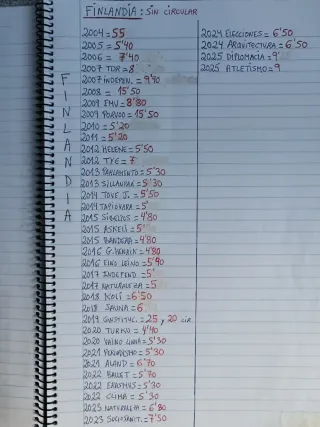 FINLANDIA: SIN CIRCULAR
FINLANDIA
2004 = 55
2005 = 5'40
2006 = 7'40
2007 TDR = 8
2007 INDEPEN. = 9'90
2008 = 15'50
2009 EMU = 8'80
2009 PORVOO = 15'50
2010 = 5'20
2011 = 5'20
2012 HELENE = 5'50
2012 TYE = 7
2013 PARLAMENTO = 5'30
2013 SILLANPAA = 5'30
2014 TOVE J. = 5'50
2014 TAPIOVARA = 5'
2015 SIBELIUS = 4'80
2015 ASKELI = 5'
2015 BANDERA = 4'80
2016 G. HENRIK = 4'80
2016 EINO LEINO = 5'90
2017 INDEPEND = 5'
2017 NATURALEZA = 5
2018 KOLI = 6'50
2018 SAUNA = 6
2019 CONSTITUC. = 25, 20 CIR
2020 TURKU = 4'40
2020 VAINO LINNA = 5'30
2021 PERIODISMO = 5'30
2021 ALAND = 6'70
2022 BALLET = 5'70
2022 ERASMUS = 5'30
2022 CLIMA = 5'30
2023 NATURALEZA = 6'80
2023 SOC+SANIT. = 7'50
2024 ELECCIONES = 6'50
2024 ARQUITECTURA = 6'50
2025 DIPLOMACIA = 9'
2025 ATLETISMO = 9